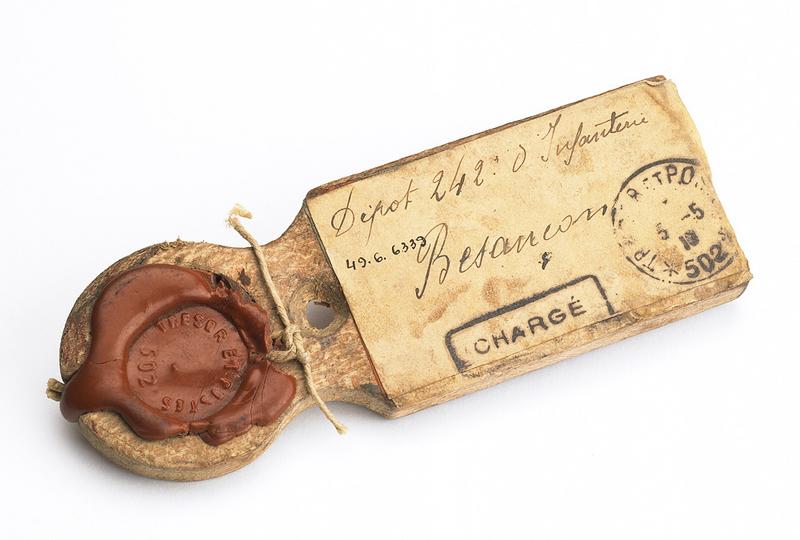 Dépot 242: d'Infanterie
49.6.6339
Besancon
CHARGÉ
5 -5
502
TRESOR ET POSTES
502